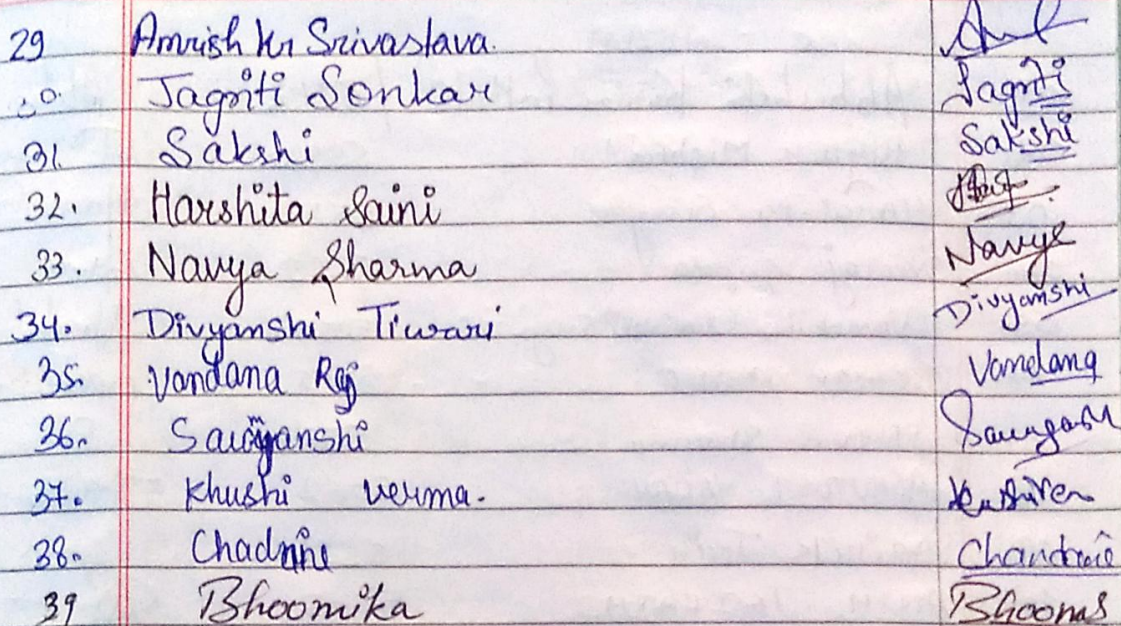 29 Amrish kr Srivastava.
30 Jagriti Sonkar Jagriti
31. Sakshi Sakshi
32. Harshita Saini
33. Navya Sharma Navya
34. Divyanshi Tiwari Divyanshi
35. Vandana Raj Vandana
36. Sauyanshi
37. Khushi Verma.
38. Chadnine Chandnie
39 Bhoomika